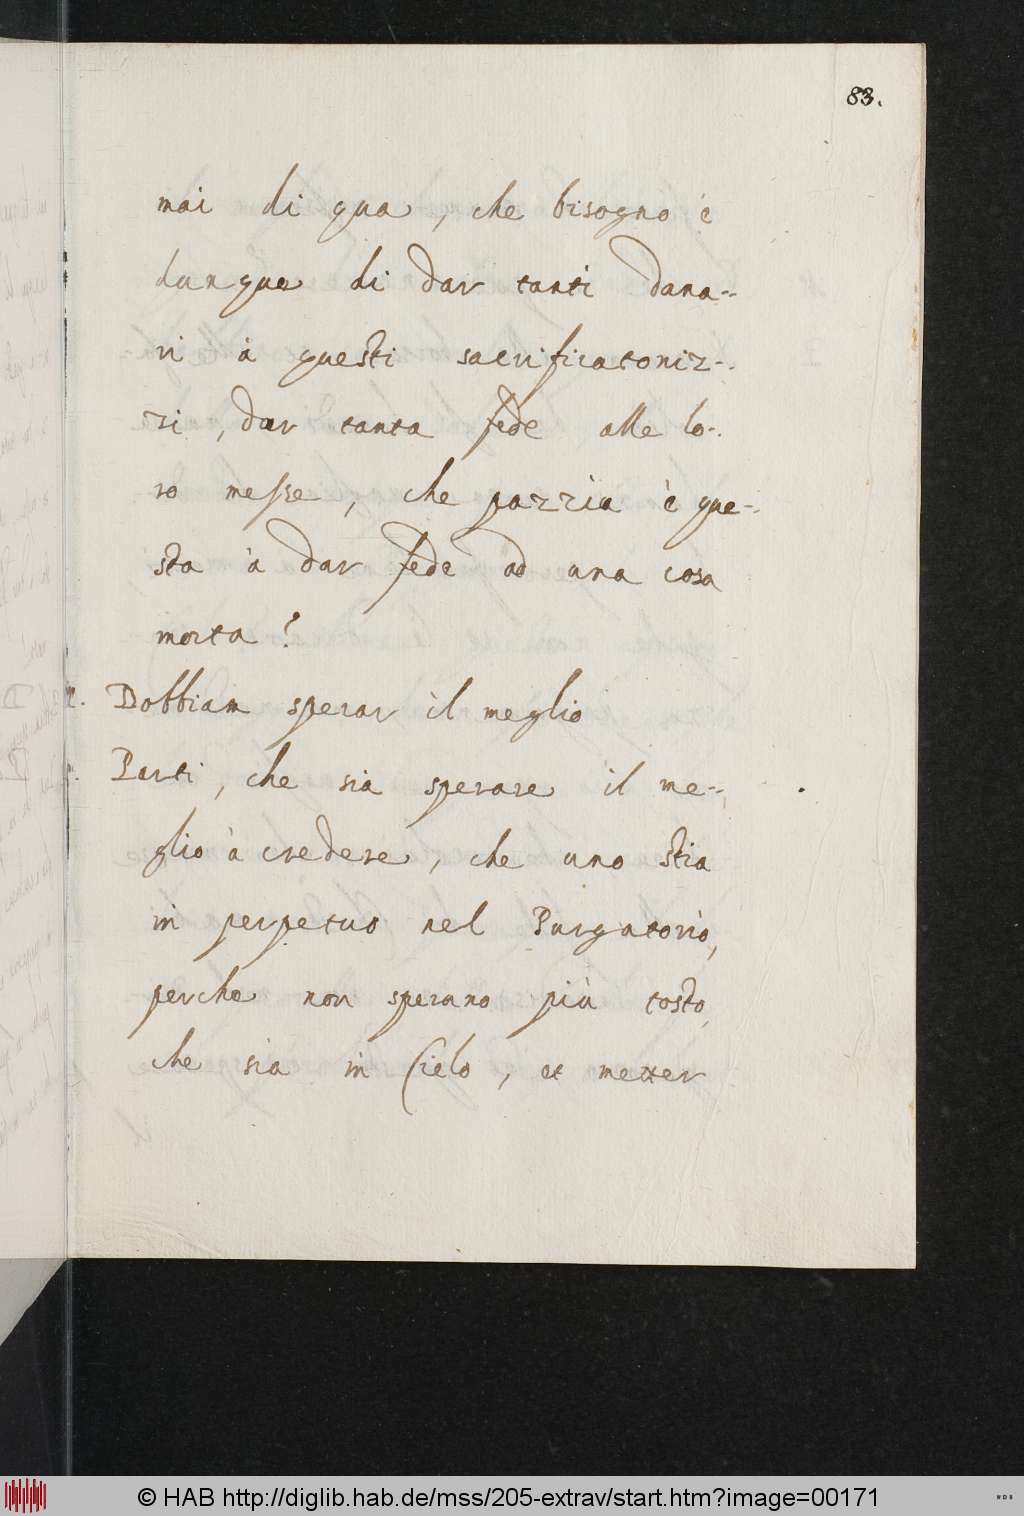 83.
mai di qua, che bisogno è
dunque di dar tanti dana-
ri à questi sacrificatoniz-
zi, dar tanta fede alle lo-
ro messe, che pazzia è que-
sta à dar fede ad una cosa
morta?
Dobbiam sperar il meglio
Parti, che sia sperare il me-
glio à credere, che uno stia
in perpetuo nel Purgatorio,
perche non sperano più tosto
che sia in Cielo, et metter
© HAB http://diglib.hab.de/mss/205-extrav/start.htm?image=00171